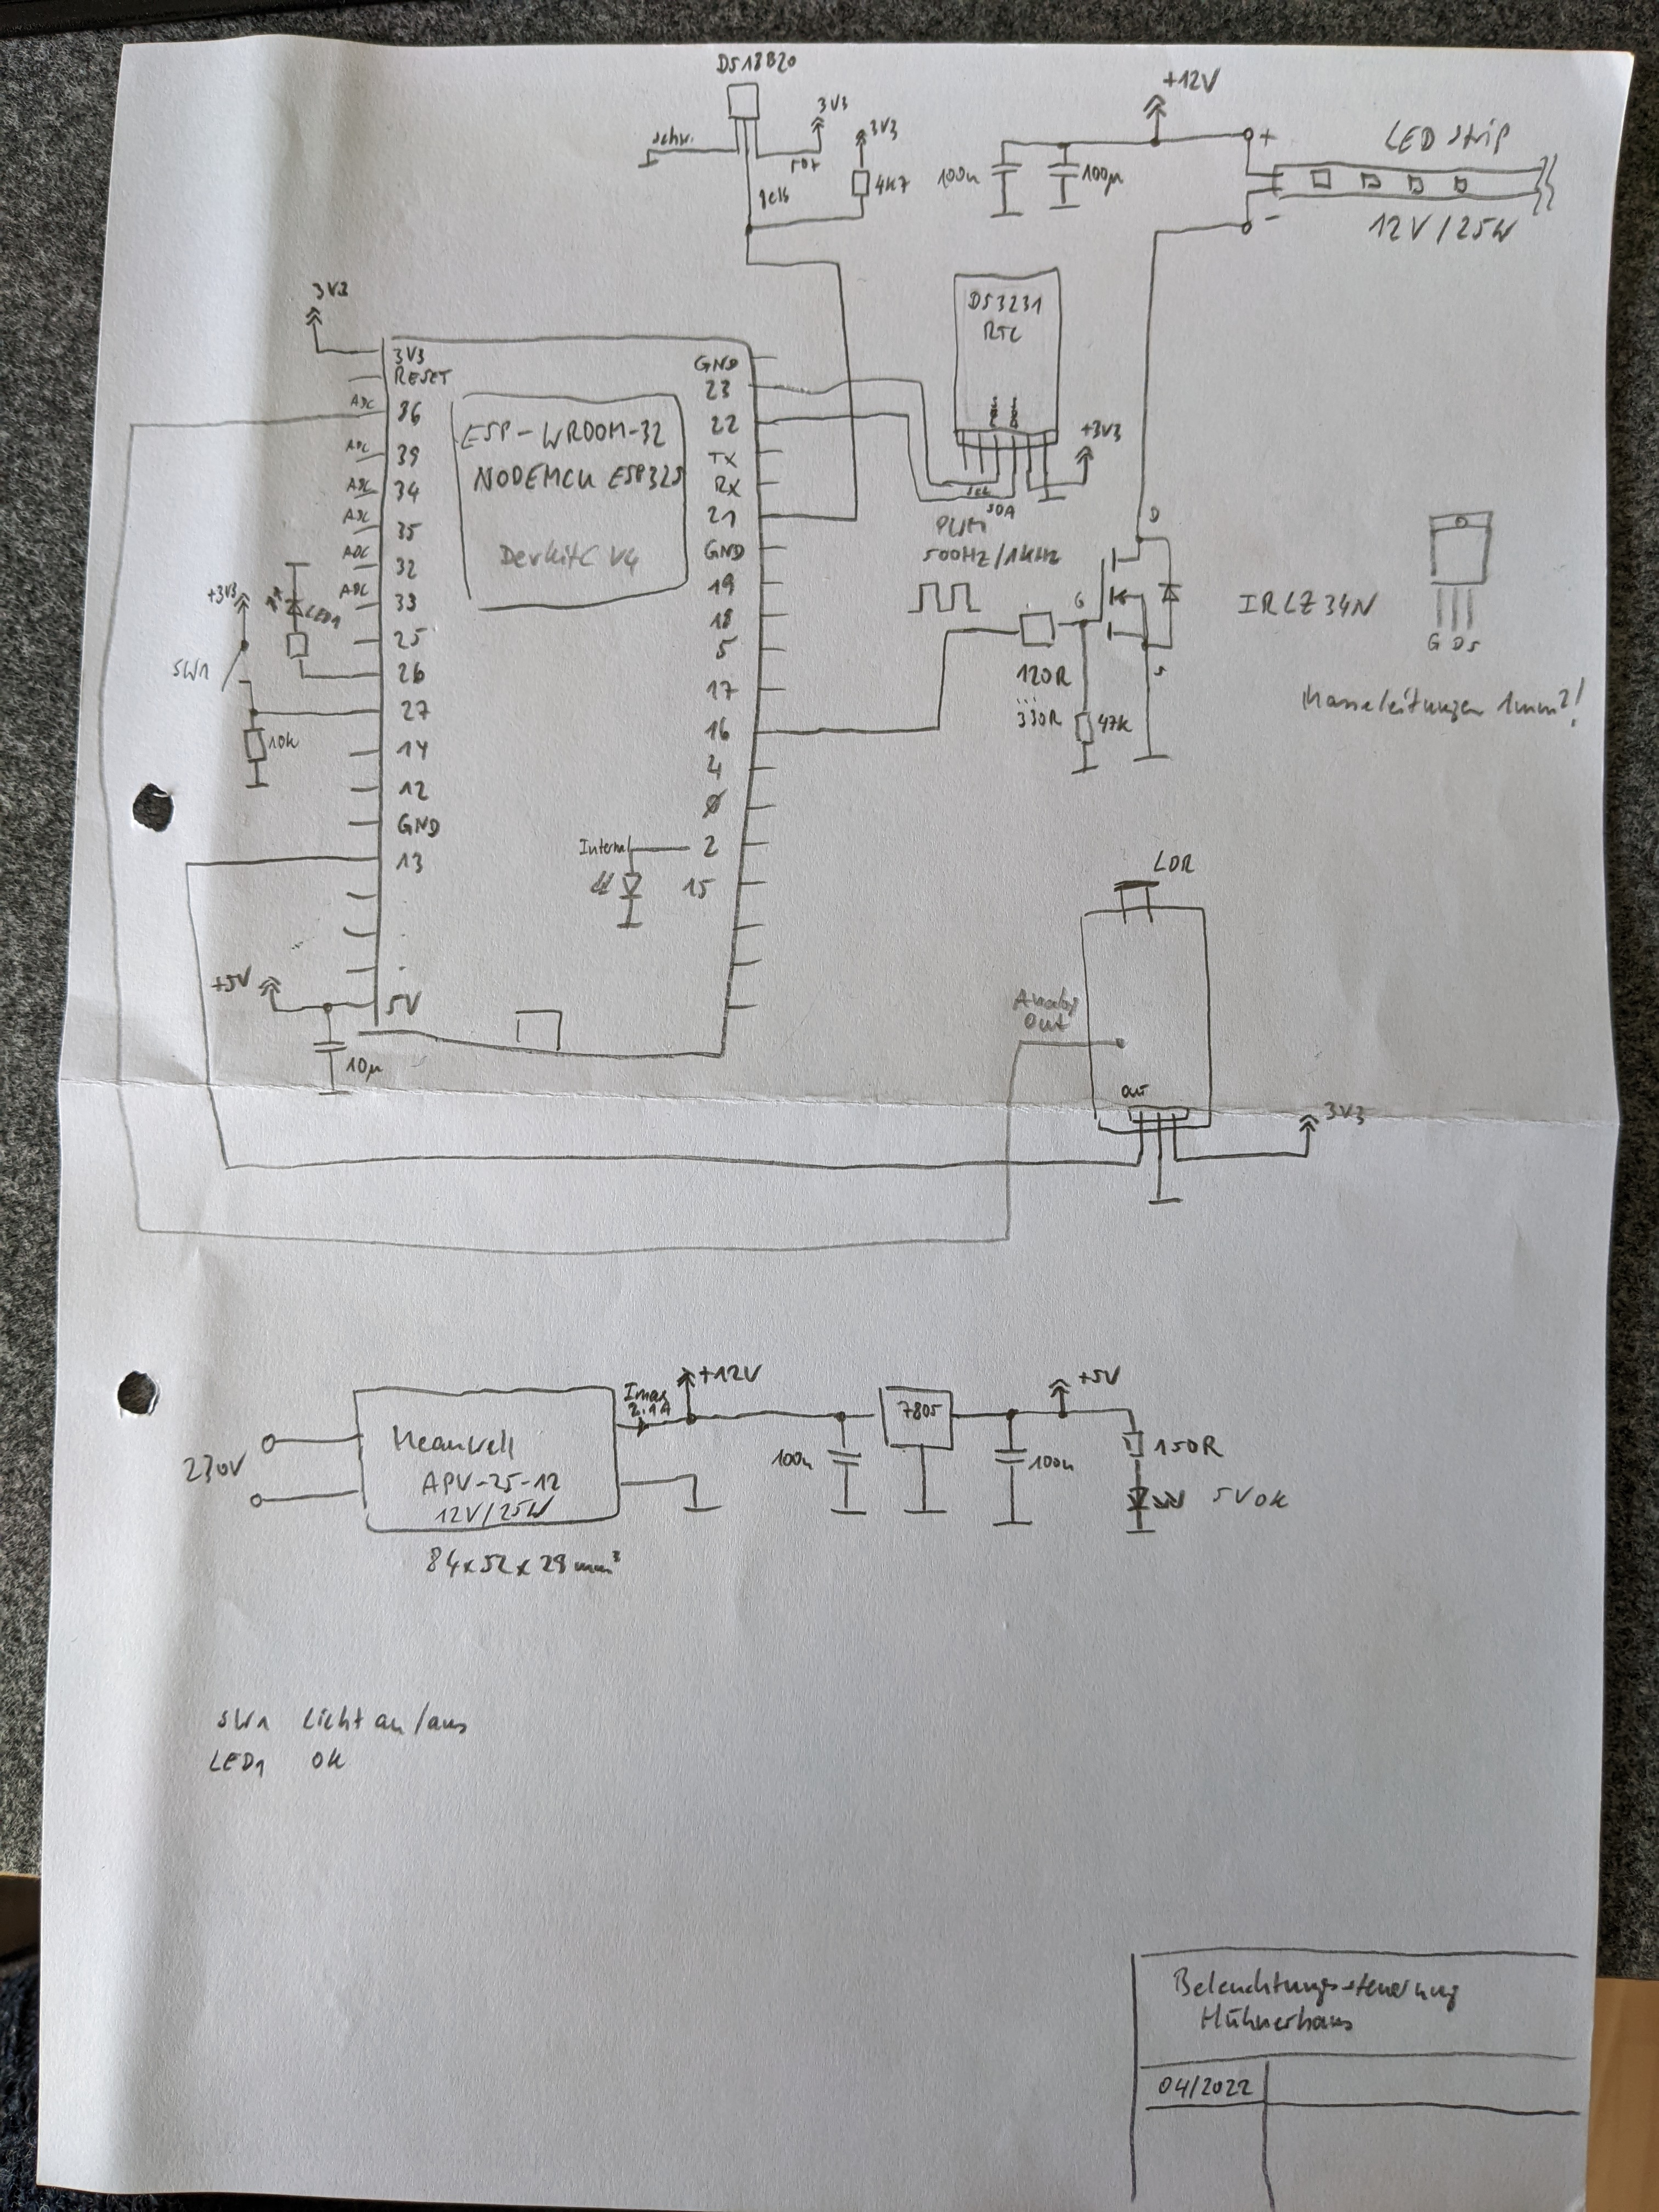 DS18B20
3V3
schw.
rot
gelb
3V3
4k7
+12V
100n
100µ
+
LED Strip
-
12V/25W
3V3
3V3
RESET
ADC 36
ADC 39
ADC 34
ADC 35
ADC 32
ADC 33
25
26
27
14
12
GND
13
5V
ESP-WROOM-32
NODEMCU ESP32S
DevkitC V4
GND
23
22
TX
RX
21
GND
19
18
5
17
16
4
Ø
2
15
Internal
+3V3
LED1
SW1
10k
+5V
10µ
DS3231
RTC
+3V3
SCL
SDA
PWM
500Hz/1kHz
120R
...
330R
47k
G
D
S
IRLZ34N
G D S
Masseleitungen 1mm²!
LDR
Analog
Out
OUT
3V3
230V
Meanwell
APV-25-12
12V/25W
84x52x29mm³
Imax
2.1A
+12V
100n
7805
100n
+5V
150R
5V OK
SW1 Licht an/aus
LED1 OK
Beleuchtungssteuerung
Hühnerhaus
04/2022